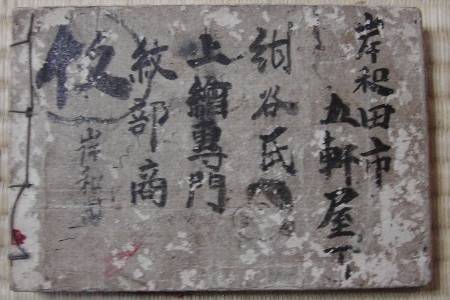 岸和田市
五軒屋下
紺谷氏
上繪專門
紋部商
仮
岸和田